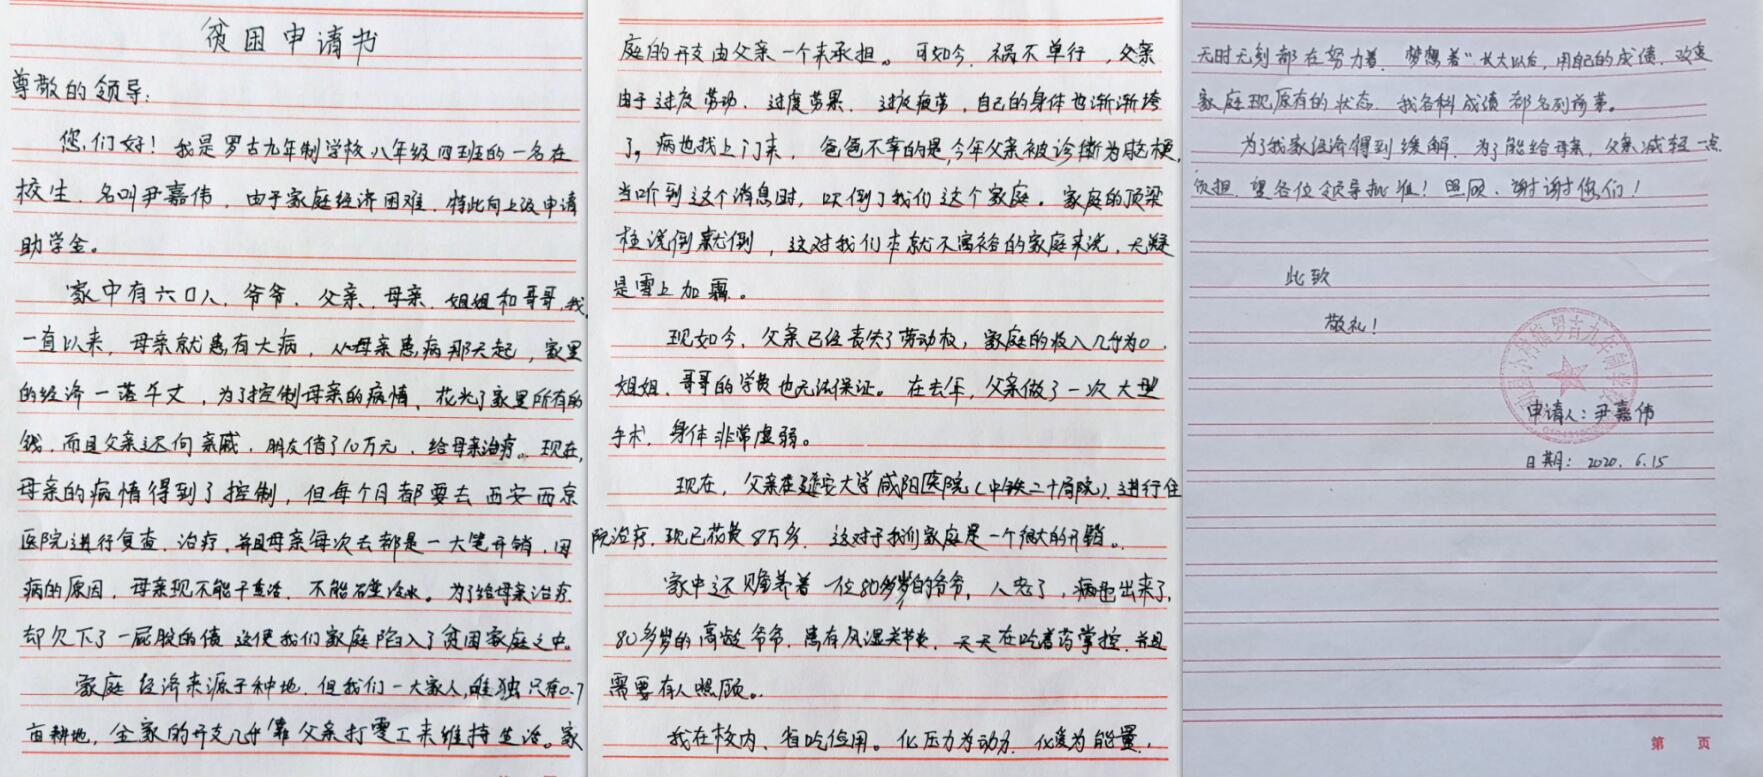 贫困申请书
尊敬的领导：
您们好！我是罗古九年制学校八年级四班的一名在
校生，名叫尹嘉伟，由于家庭经济困难，特此向上级申请
助学金。
家中有六口人，爷爷、父亲、母亲、姐姐和哥哥，我。
一直以来，母亲就患有大病，从母亲患病那天起，家里
的经济一落千丈，为了控制母亲的病情，花光了家里所有的
钱，而且父亲还向亲戚，朋友借了10万元，给母亲治疗。现在，
母亲的病情得到了控制，但每个月都要去西安西京
医院进行复查、治疗，并且母亲每次去都是一大笔开销，因
病的原因，母亲现不能干重活，不能碰冷水。为了给母亲治疗
却欠下了一屁股的债，这使我们家庭陷入了贫困家庭之中。
家庭经济来源于种地，但我们一大家人，唯独只有0.7
亩耕地，全家的开支几乎靠父亲打零工来维持生活。家
庭的开支由父亲一个来承担。可如今，祸不单行，父亲
由于过度劳动、过度劳累、过度疲劳，自己的身体也渐渐垮
了，病也找上门来，爸爸不幸的是，今年父亲被诊断为梗，
当听到这个消息时，吹倒了我们这个家庭。家庭的顶梁
柱说倒就倒，这对我们本就不富裕的家庭来说，无疑
是雪上加霜。
现如今，父亲已经丧失了劳动权，家庭的收入几乎为0，
姐姐、哥哥的学费也无法保证。在去年，父亲做了一次大型
手术，身体非常虚弱。
现在，父亲在延安大学咸阳医院（中铁二十局院）进行住
院治疗，现已花费8万多，这对于我们家庭是一个很大的开销。
家中还赡养着一位80多岁的爷爷，人老了，病也出来了，
80多岁的高龄爷爷，患有风湿关节炎，天天在吃着药掌控，并且
需要有人照顾。
我在校内、省吃俭用。化压力为动力，化为能量，
无时无刻都在努力着，梦想着“长大以后，用自己的成绩，改变
家庭现原有的状态，我各科成绩都名列前茅。
为了我家经济得到缓解，为了能给母亲，父亲减轻一点
负担，望各位领导批准！照顾、谢谢您们！
此致
敬礼！
罗古九年制学校
申请人：尹嘉伟
日期：2020.6.15
第 页